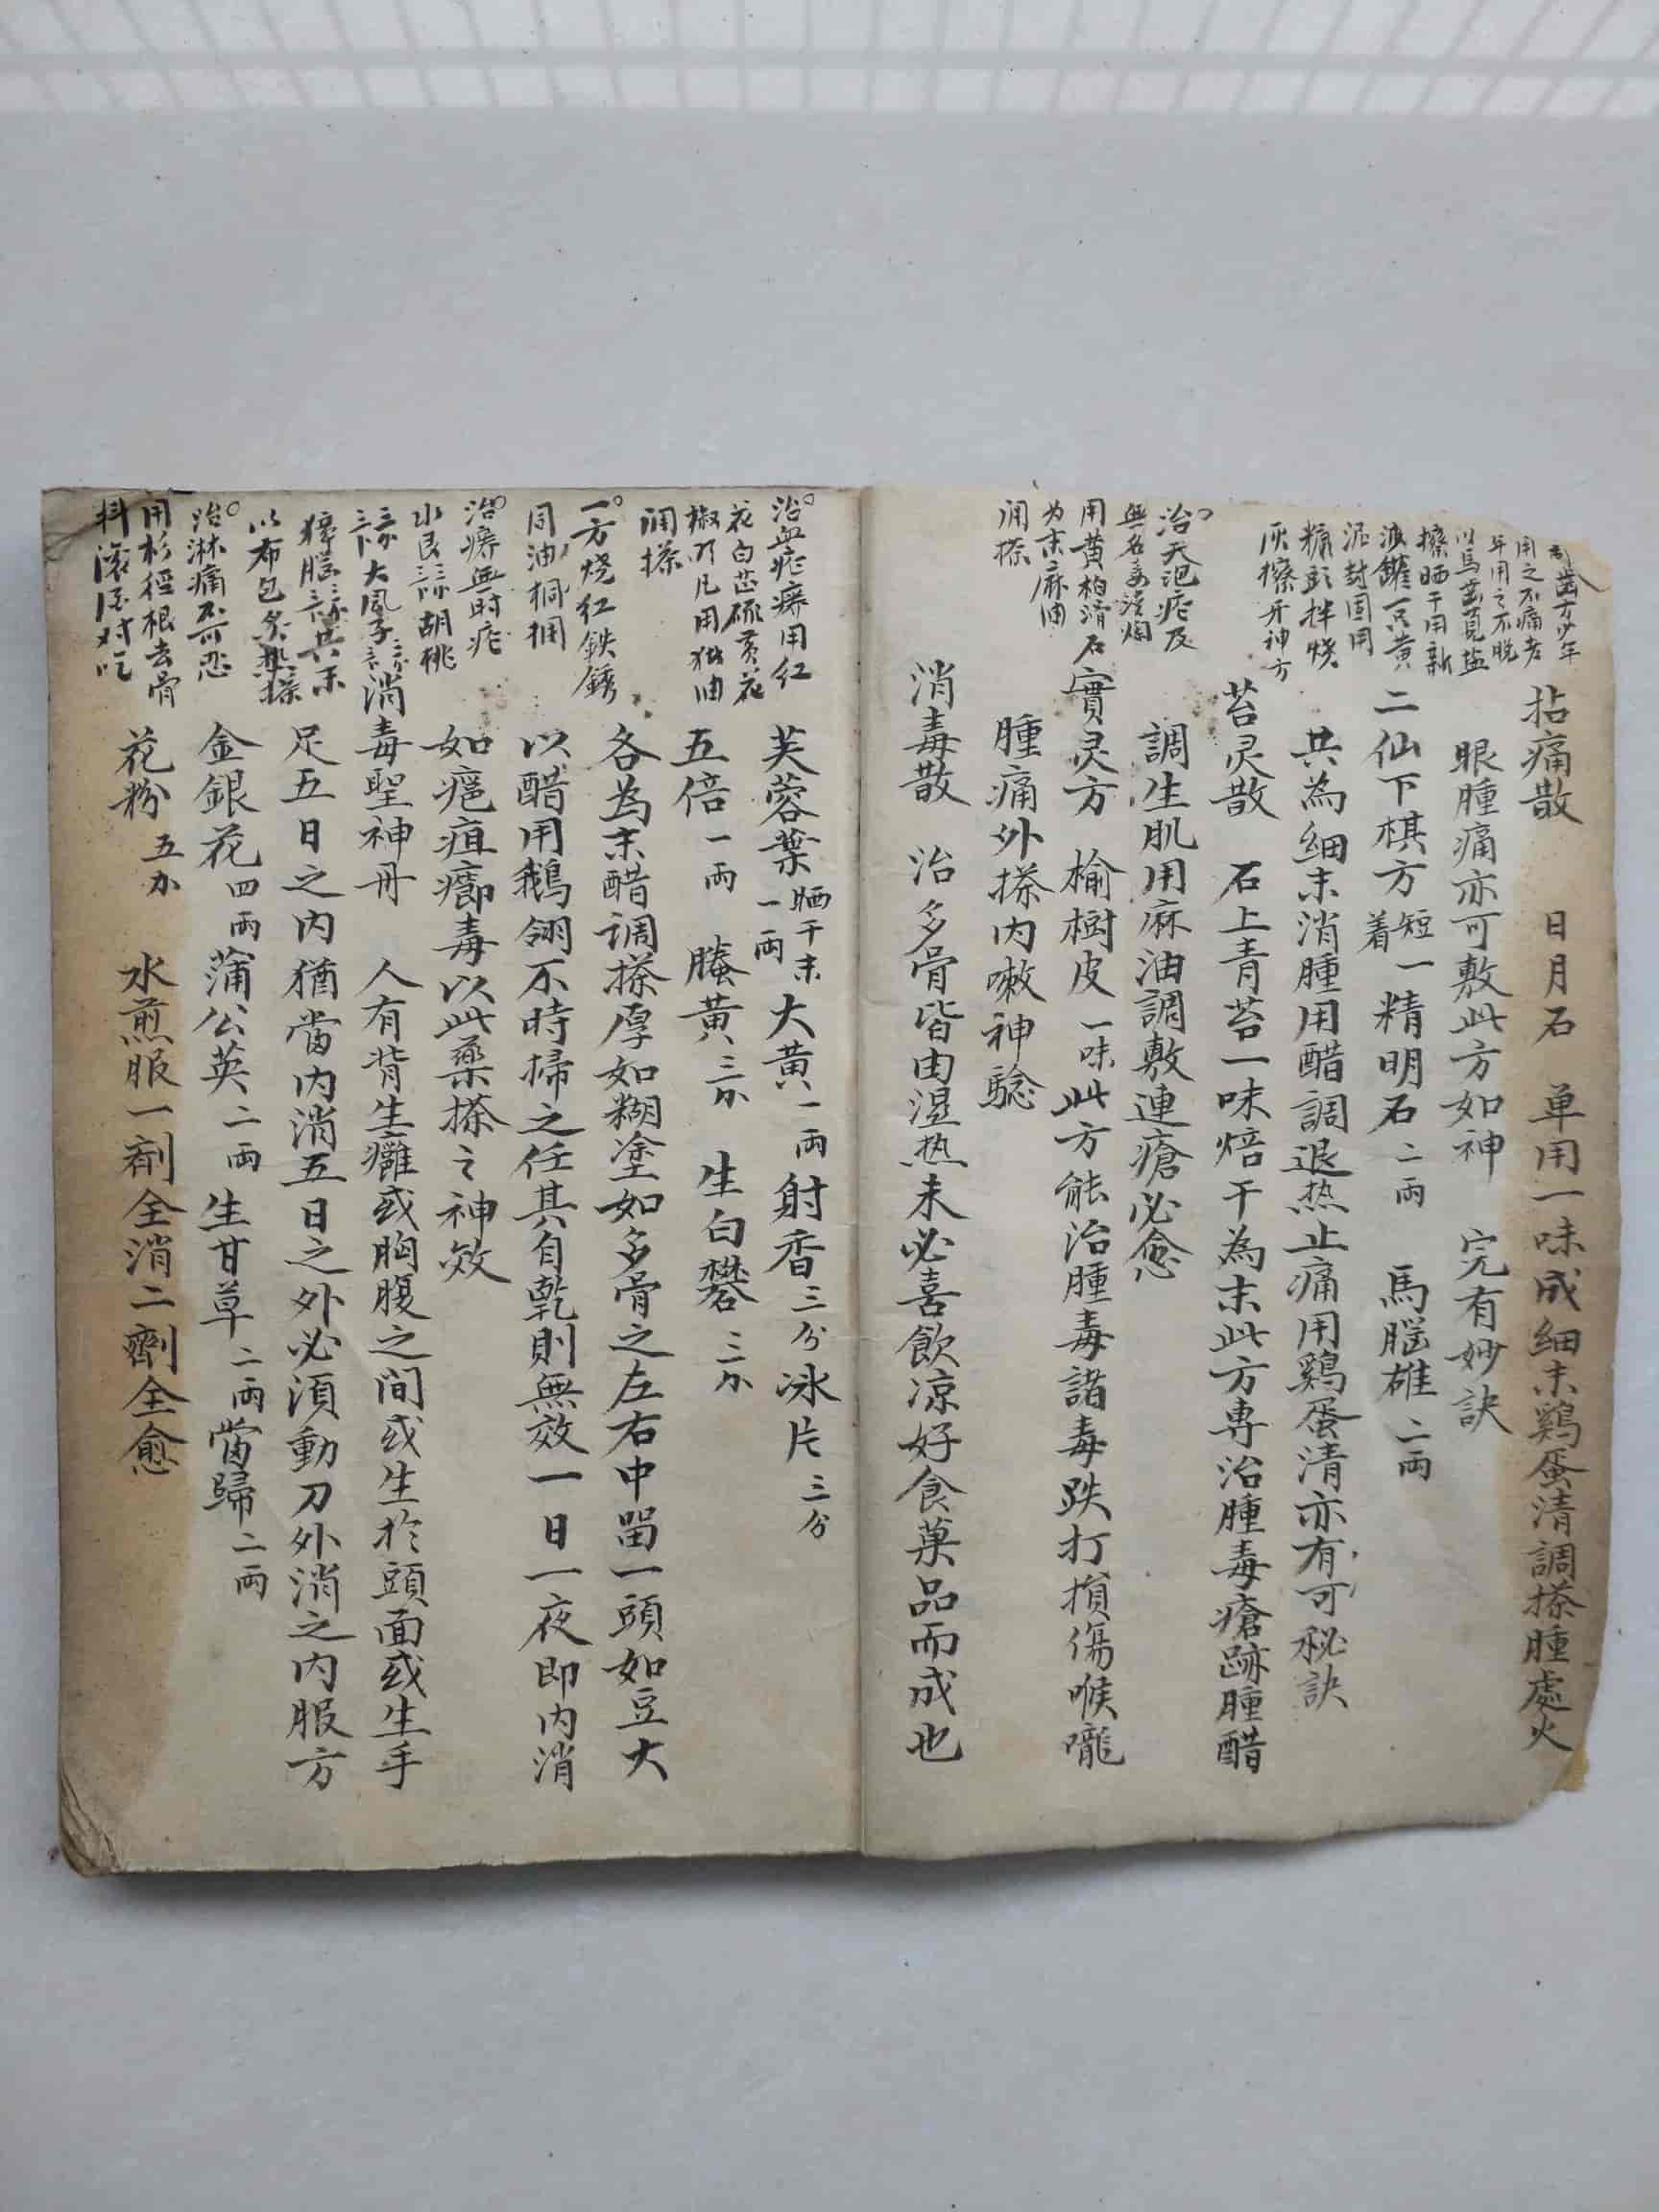 固齒方少年
用之不痛老
年用之不脫
以馬齒莧盐
擦晒干用新
泥封固用
糠頭拌燒
灰擦牙神方
治天泡疮及
用黄柏清石
为末麻油
润搽
拈痛散 日月石 单用一味成細末鷄蛋清調搽腫處火
眼腫痛亦可敷此方如神 完有妙訣
二仙下棋方 短着 一精明石二兩 馬腦雄二兩
共為細末消腫用醋調退热止痛用鷄蛋清亦有可秘訣
苔灵散 石上青苔一味焙干為末此方専治腫毒瘡跡腫醋
調生肌用麻油調敷連瘡必愈
實灵方 榆樹皮一味此方能治腫毒諸毒跌打損傷喉嚨
腫痛外搽内嗽神騐
消毒散 治多骨皆由湿热未必喜飲凉好食菓品而成也
治血疕癣用红
花白芷硫黄花
椒明凡用猪油
润搽
一方烧红鉄銹
同油桐捆
治癣無时疕
水艮三分胡桃
大風子
樟腦共末
以布包条热搽
治淋痛不可忍
用杉徑根去骨
料滚酒对吃
芙蓉葉晒干末一兩大黄一兩射香三分冰片三分
五倍一兩 螣黄三分 生白礬三分
各為末醋調搽厚如糊塗如多骨之左右中畱一頭如豆大
以醋用鵝翎不時掃之任其自乾則無效一日一夜即内消
如瘪疽癤毒以此藥搽之神效
消毒聖神丹 人有背生癰或胸腹之间或生於頭面或生手
足五日之内猶當内消五日之外必須動刀外消之内服方
金銀花四兩蒲公英二兩生甘草二兩當歸二兩
花粉五分 水煎服一剤全消二劑全愈